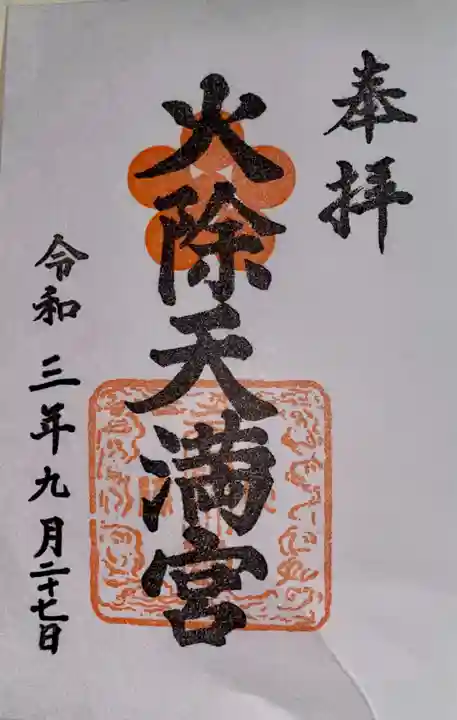 奉拝
火除天満宮
令和三年九月二十七日